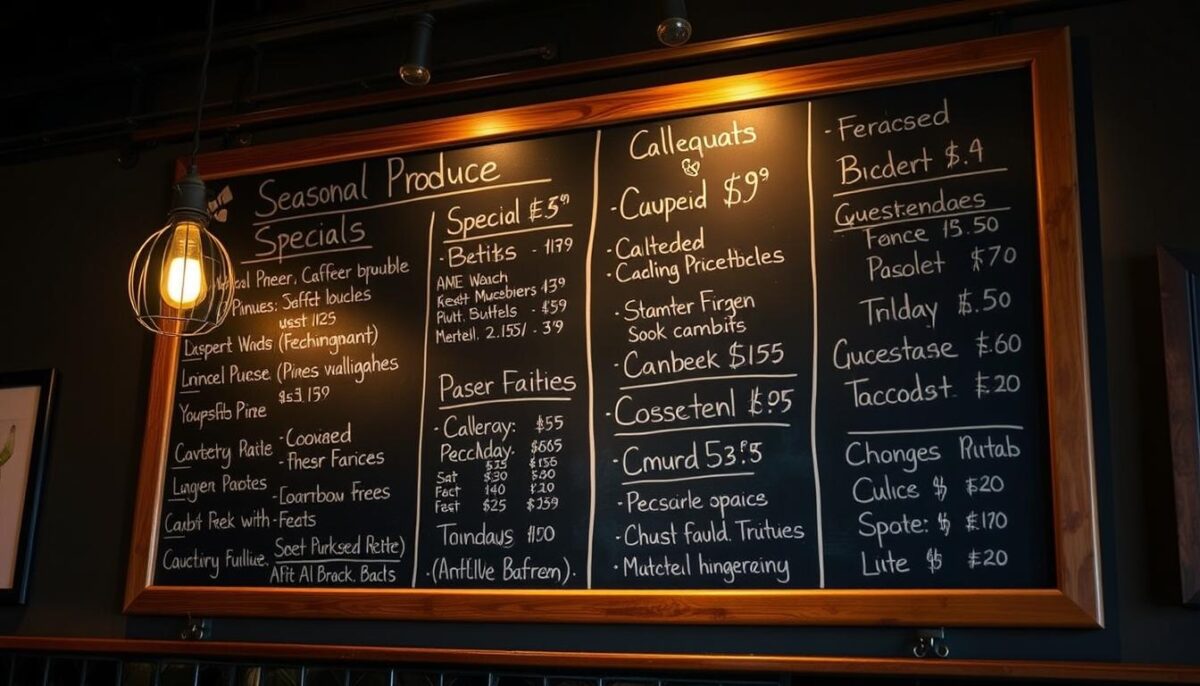 Seasonal Produce
Specials
Pheer, Caffeer bpuuble
Pinues: Saffet loucles
usst 1125
Dispert Winds (Fechingnant)
Linincel Puese (Pines vualligahes
Youpsfib Pine
Cavtety Raite - Cooxined
- Fhesr Farices
Lungen Paotes
- Coarnbow Frees
Caabit Reek with - Feats
Cauctiry Fulliue, Soet Purksed Rette)
Afit Al Brock. Bads
Special
- Betits - 1179
AME Wäach
Kesit Mucsbiers 439
Piutt. Buffels - $59
Mertell. 2.155/ - 3'9
Paser Faities
- Calleray: $55
Pecchday. $665
Sat $30
Fact 140
Fest $25 $259
Toindaus 1150
.(Antlive Bafrem).
Callequats
- Caupeid $9⁹
- Caltteded
- Cacling Pricettbcles
- Stamter Firgen
Sook cambits
- Canbeek $155
- Cossetenl
- Cmurd
- Pecsarle opaice
- Chust fauld. Trutues
- Mutcteil hingerainy
- Feracsed
Bicdert $.4
Questendaes
Fonce 15.50
Pasolet $70
Tnlday .50
Gucestase .60
Taccodst. .20
Chonges Rutab
Culice $ 20
Spote: $
Liite $ 20